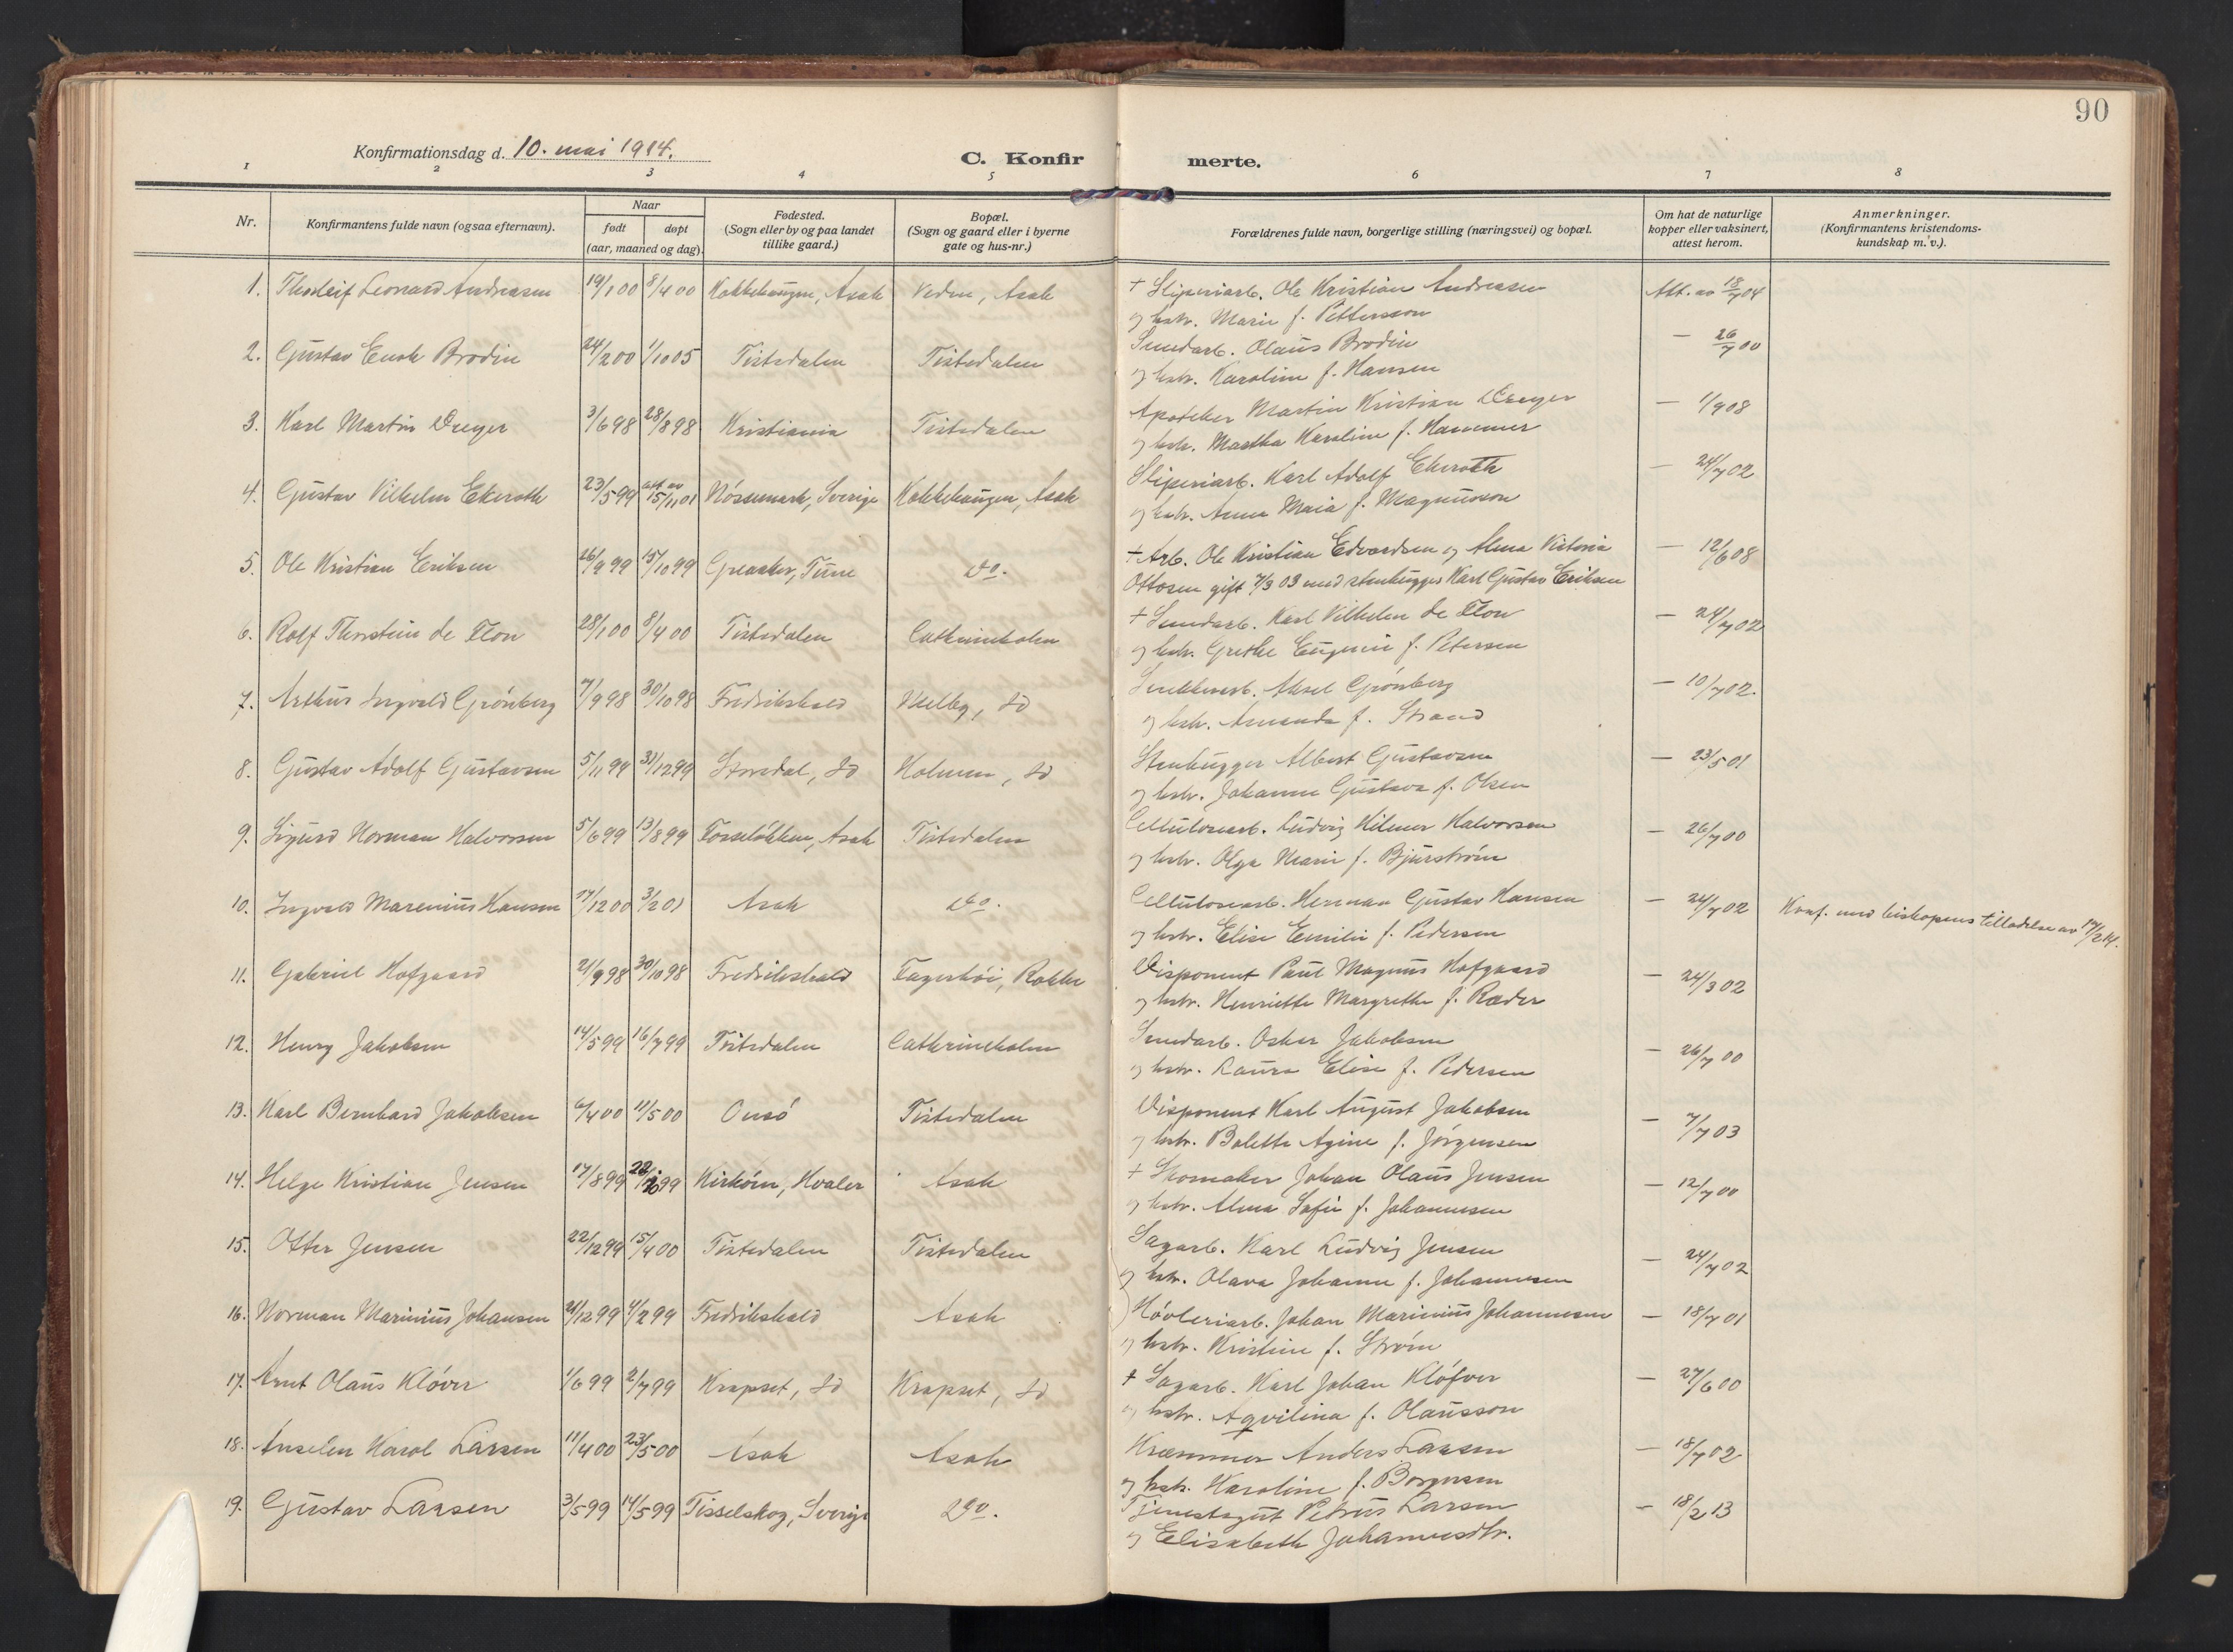 90
Konfirmationsdag d. 10. mai 1914.
C. Konfir
merte.
1 2 3 4 5 6 7 8
Nr. Konfirmantens fulde navn (ogsaa efternavn). Naar født døpt (aar, maaned og dag). Fødested. (Sogn eller by og paa landet tillike gaard.) Bopæl. (Sogn og gaard eller i byerne gate og hus-nr.) Forældrenes fulde navn, borgerlige stilling (næringsvei) og bopæl. Om hat de naturlige kopper eller vaksinert, attest herom. Anmerkninger. (Konfirmantens kristendoms-kundskap m. v.).
1. Thorleif Leonard Andreasen 19/1 00 8/4 00 Kokkehaugen, Asak Veden, Asak + Sliperiarb. Ole Kristian Andreasen Att. av 18/7 04
og hstr. Marie f. Pettersson
2. Gustav Enok Brodin 24/2 00 1/10 05 Tistedalen Tistedalen Smedarb. Olaus Brodin — 26/7 00
og hstr. Karoline f. Hansen
3. Karl Martin Dreyer 3/6 98 28/8 98 Kristiania Tistedalen Apoteker Martin Kristian Dreyer — 1/9 08
og hstr. Martha Karoline f. Hammer
4. Gustav Vilhelm Ekeroth 23/5 99 att. av 15/11 01 Nössemark, Sverige Kokkehaugen, Asak Sliperiarb. Karl Adolf Ekeroth — 24/7 02
og hstr. Anna Maia f. Magnusson
5. Ole Kristian Eriksen 26/9 99 15/10 99 Greaaker, Tune Do. + Arb. Ole Kristian Edvardsen og Alma Victoria — 12/6 08
Ottosen gift 7/3 03 med stenhugger Karl Gustav Eriksen
6. Rolf Thorstein de Flon 28/1 00 8/4 00 Tistedalen Cathrineholm + Smedarb. Karl Vilhelm de Flon — 24/7 02
og hstr. Grethe Eugenie f. Petersen
7. Arthur Ingvald Grönberg 7/9 98 30/10 98 Fredrikshald Velby, Id Snekkerarb. Aksel Grönberg — 10/7 02.
og hstr. Amanda f. Strand
8. Gustav Adolf Gustavsen 5/11 99 31/12 99 Storedal, Id Holmen, Id Stenhugger Albert Gustavsen — 23/5 01
og hstr. Johanne Gustava f. Olsen
9. Sigurd Norman Halvorsen 5/6 99 13/8 99 Fosselökken, Asak Tistedalen Cellulosearb. Ludvig Hilmer Halvorsen — 26/7 00
og hstr. Olga Marie f. Bjurström
10. Ingvald Marenius Hansen 17/12 00 3/2 01 Asak Do. Cellulosearb. Herman Gustav Hansen — 24/7 02 Konf. med biskopens tilladelse av 17/2 14.
og hstr. Elise Emilie f. Pedersen
11. Gabriel Hofgaard 21/9 98 30/10 98 Fredrikshald Fagerhöi, Rokke Disponent Paul Magnus Hofgaard — 24/3 02
og hstr. Henriette Margrethe f. Ræder
12. Henry Jakobsen 14/5 99 16/7 99 Tistedalen Cathrineholm Smedarb. Oskar Jakobsen — 26/7 00
og hstr. Laura Elise f. Pedersen
13. Karl Bernhard Jakobsen 6/4 00 11/5 00 Onsö Tistedalen Disponent Karl August Jakobsen — 7/7 03
og hstr. Bolette Agine f. Jörgensen
14. Helge Kristian Jensen 17/8 99 22/10 99 Kirköen, Hvaler Asak + Skomaker Johan Olaus Jensen — 12/7 00
og hstr. Alma Sofie f. Johannesen
15. Otter Jensen 22/12 99 15/4 00 Tistedalen Tistedalen Sagarb. Karl Ludvig Jensen — 24/7 02
og hstr. Olava Johanne f. Johannesen
16. Norman Marinius Johansen 21/12 99 4/2 99 Fredrikshald Asak Hövleriarb. Johan Marinius Johannesen — 18/7 01
og hstr. Kristine f. Ström
17. Arnt Olaus Klöver 1/6 99 2/7 99 Krapset, Id Krapset, Id + Sagarb. Karl Johan Klöfver — 27/6 00
og hstr. Aqvilina f. Olausson
18. Anselm Harol Larsen 11/4 00 23/5 00 Asak Asak Kræmmer Anders Larsen — 18/7 02
og hstr. Karoline f. Borgersen
19. Gustav Larsen 3/5 99 14/5 99 Tisselskog, Sverige Do. Tjenestegut Petrus Larsen — 18/2 13
og Elisabeth Johannesdtr.